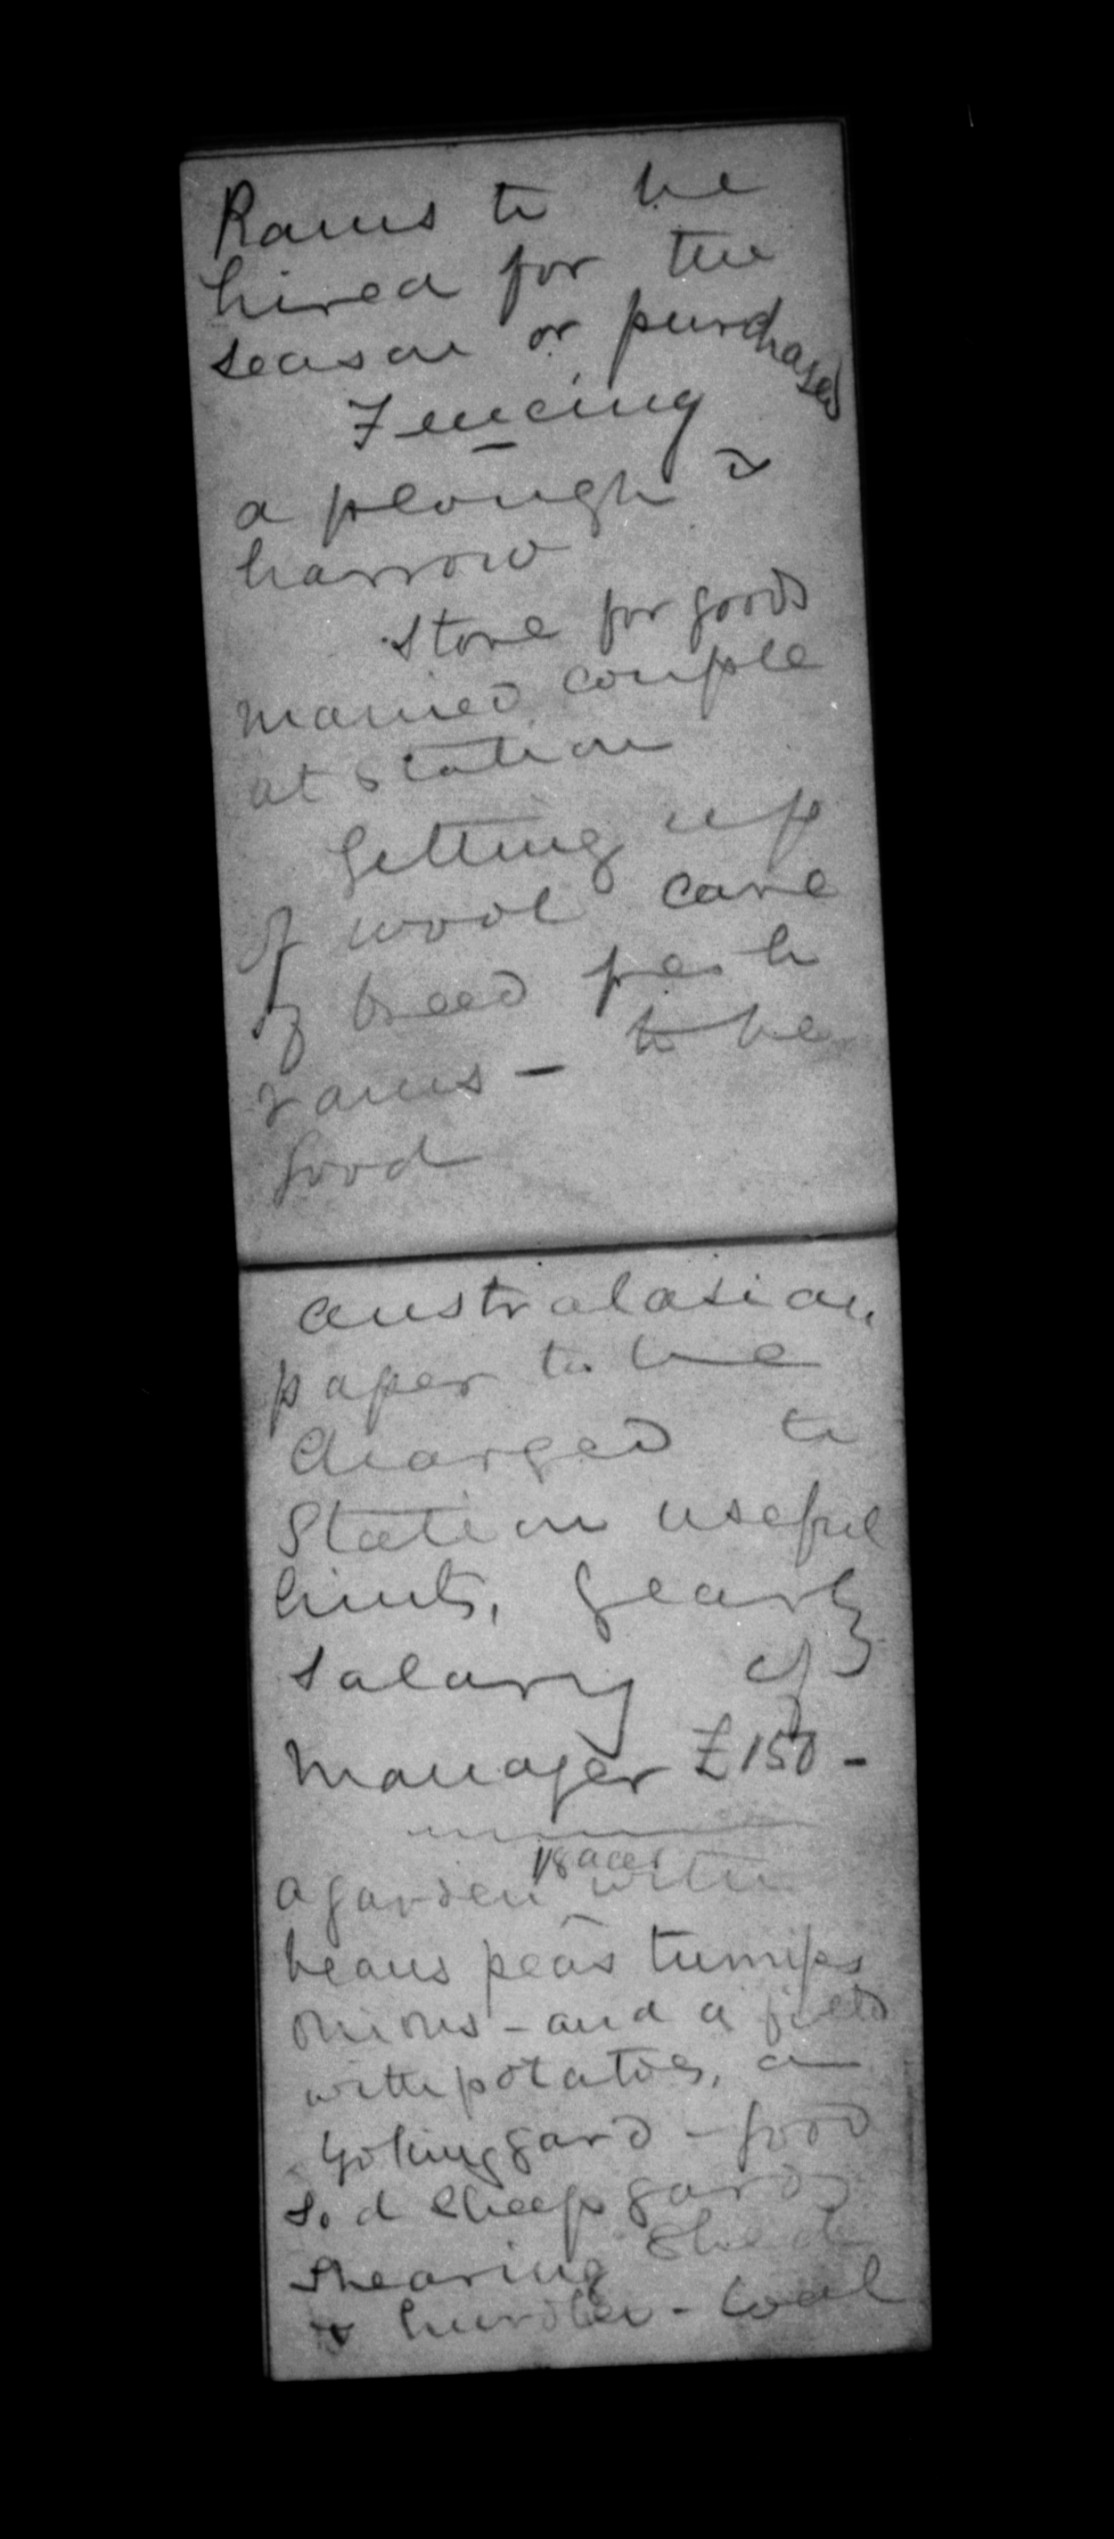 Rams to be
hired for the
season or purchased
Fencing
a plough &
harrow
Store for goods
married couple
at station
Getting up
of wool care
of breed fresh
rams - to be
good
Australasian
paper to be
charged to
Station useful
hints, yearly
salary of
manager £150 -
1/8 acer
a garden with
beans peas turnips
onions - and a field
with potatoes, a
yoking yard - good
sod sheep yards
shearing shed
& hurdles - Coal